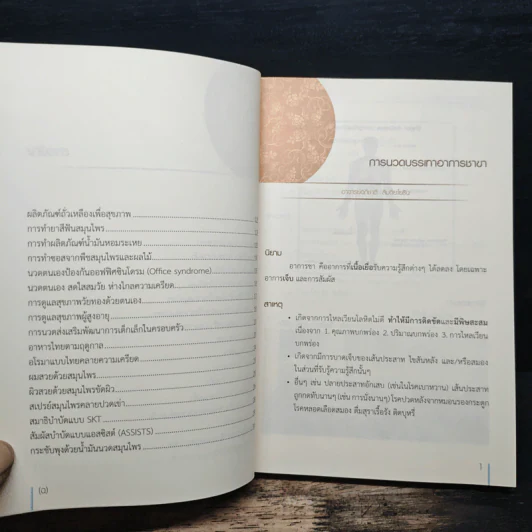 ผลิตภัณฑ์ถั่วเหลืองเพื่อสุขภาพ
การทำยาสีฟันสมุนไพร
การทำผลิตภัณฑ์น้ำมันหอมระเหย
การทำซอสจากพืชสมุนไพรและผลไม้
นวดตนเองป้องกันออฟฟิศซินโดรม (Office syndrome)
นวดตนเอง สดใสสมวัย ห่างไกลความเครียด
การดูแลสุขภาพวัยทองด้วยตนเอง
การดูแลสุขภาพผู้สูงอายุ
การนวดส่งเสริมพัฒนาการเด็กเล็กในครอบครัว
อาหารไทยตามฤดูกาล
อโรมาแบบไทยคลายความเครียด
ผมสวยด้วยสมุนไพร
ผิวสวยด้วยสมุนไพรขัดผิว
สเปรย์สมุนไพรคลายปวดเข่า
สมาธิบำบัดแบบ SKT
สัมผัสบำบัดแบบแอสซิสต์ (ASSISTS)
กระชับพุงด้วยน้ำมันนวดสมุนไพร
(๑)
การนวดบรรเทาอาการชาขา
นิยาม
อาการชา คืออาการที่เนื้อเยื่อรับความรู้สึกต่างๆ ได้ลดลง โดยเฉพาะ
อาการเจ็บ และการสัมผัส
สาเหตุ
• เกิดจากการไหลเวียนโลหิตไม่ดี ทำให้มีการติดขัดและมีพิษสะสม
เนื่องจาก 1. คุณภาพบกพร่อง 2. ปริมาณบกพร่อง 3. การไหลเวียน
บกพร่อง
• เกิดจากมีการบาดเจ็บของเส้นประสาท ไขสันหลัง และ/หรือสมอง
ในส่วนที่รับรู้ความรู้สึกนั้นๆ
• อื่นๆ เช่น ปลายประสาทอักเสบ (เช่นในโรคเบาหวาน) เส้นประสาท
ถูกกดทับนานๆ (เช่น การนั่งนานๆ) โรคปวดหลังจากหมอนรองกระดูก
โรคหลอดเลือดสมอง ดื่มสุราเรื้อรัง ติดบุหรี่
1